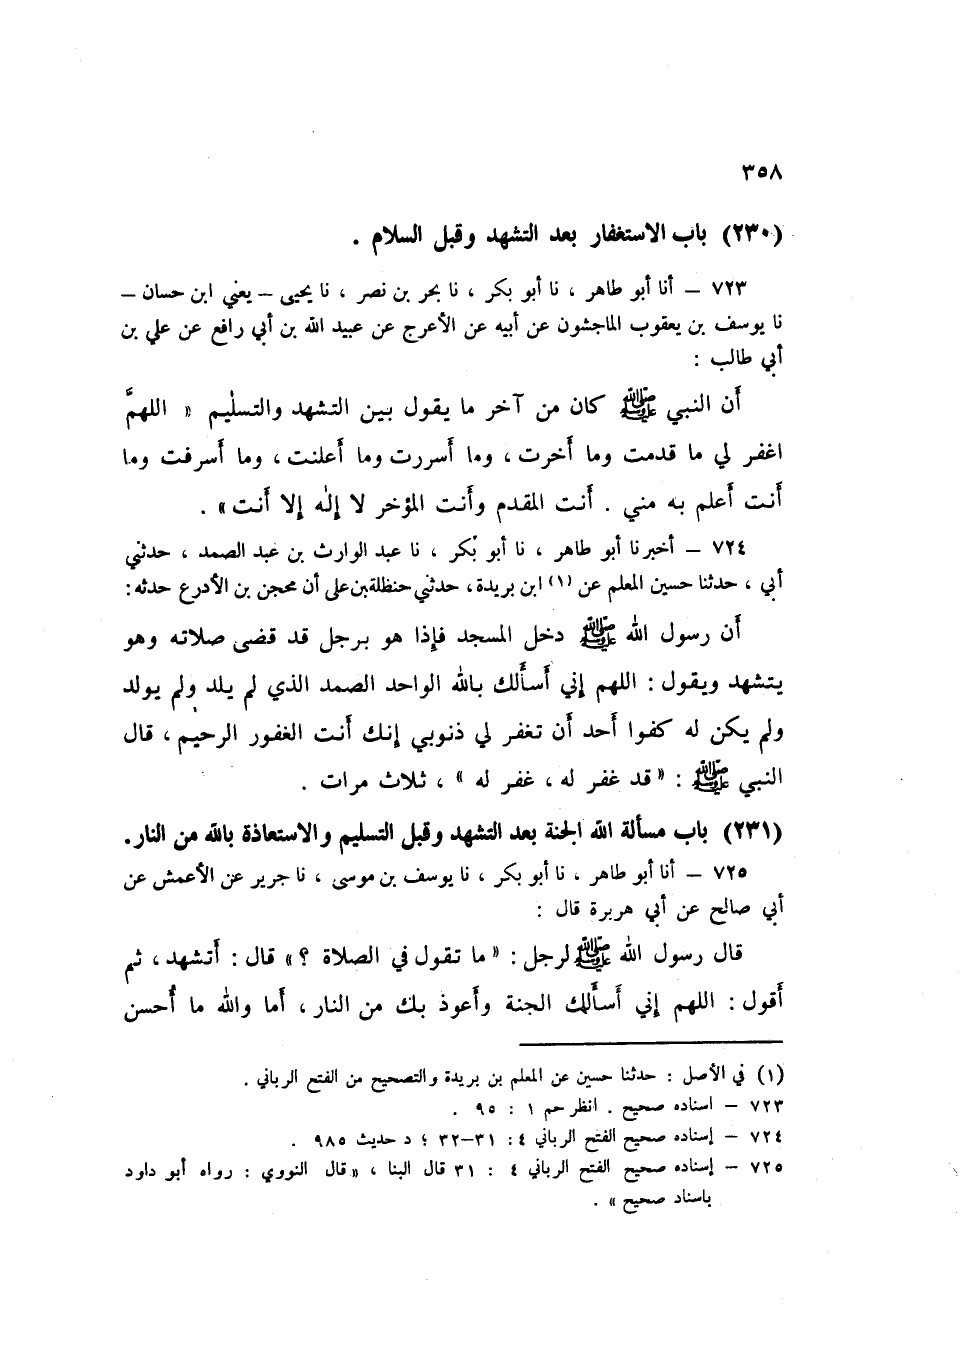 ٣٥٨
(٢٣٠) باب الاستغفار بعد التشهد وقبل السلام .
٧٢٣ – أنا أبو طاهر ، نا أبو بكر ، نا بحر بن نصر ، نا يحيى – يعني ابن حسان –
نا يوسف بن يعقوب الماجشون عن أبيه عن الأعرج عن عبيد الله بن أبي رافع عن علي بن
أبي طالب :
أن النبي ﷺ كان من آخر ما يقول بين التشهد والتسليم « اللهمَّ
اغفر لي ما قدمت وما أخرت ، وما أسررت وما أعلنت ، وما أسرفت وما
أنت أعلم به مني . أنت المقدم وأنت المؤخر لا إله إلا أنت » .
٧٢٤ – أخبرنا أبو طاهر ، نا أبو بكر ، نا عبد الوارث بن عبد الصمد ، حدثني
أبي ، حدثنا حسين المعلم عن (١) ابن بريدة ، حدثني حنظلة بن علي أن محجن بن الأدرع حدثه :
أن رسول الله ﷺ دخل المسجد فإذا هو برجل قد قضى صلاته وهو
يتشهد ويقول : اللهم إني أسألك بالله الواحد الصمد الذي لم يلد ولم يولد
ولم يكن له كفوا أحد أن تغفر لي ذنوبي إنك أنت الغفور الرحيم ، قال
النبي ﷺ : « قد غفر له ، غفر له » ، ثلاث مرات .
(٢٣١) باب مسألة الله الجنة بعد التشهد وقبل التسليم والاستعاذة بالله من النار .
٧٢٥ – أنا أبو طاهر ، نا أبو بكر ، نا يوسف بن موسى ، نا جرير عن الأعمش عن
أبي صالح عن أبي هريرة قال :
قال رسول الله ﷺ لرجل : « ما تقول في الصلاة ؟ » قال : أتشهد ، ثم
أقول : اللهم إني أسألك الجنة وأعوذ بك من النار ، أما والله ما أُحسن
(١) في الأصل : حدثنا حسين عن المعلم بن بريدة والتصحيح من الفتح الرباني .
٧٢٣ – اسناده صحيح . انظر حم ١ : ٩٥ .
٧٢٤ – إسناده صحيح الفتح الرباني ٤ : ٣١–٣٢ ؛ د حديث ٩٨٥ .
٧٢٥ – إسناده صحيح الفتح الرباني ٤ : ٣١ قال البنا ، « قال النووي : رواه أبو داود
باسناد صحيح » .